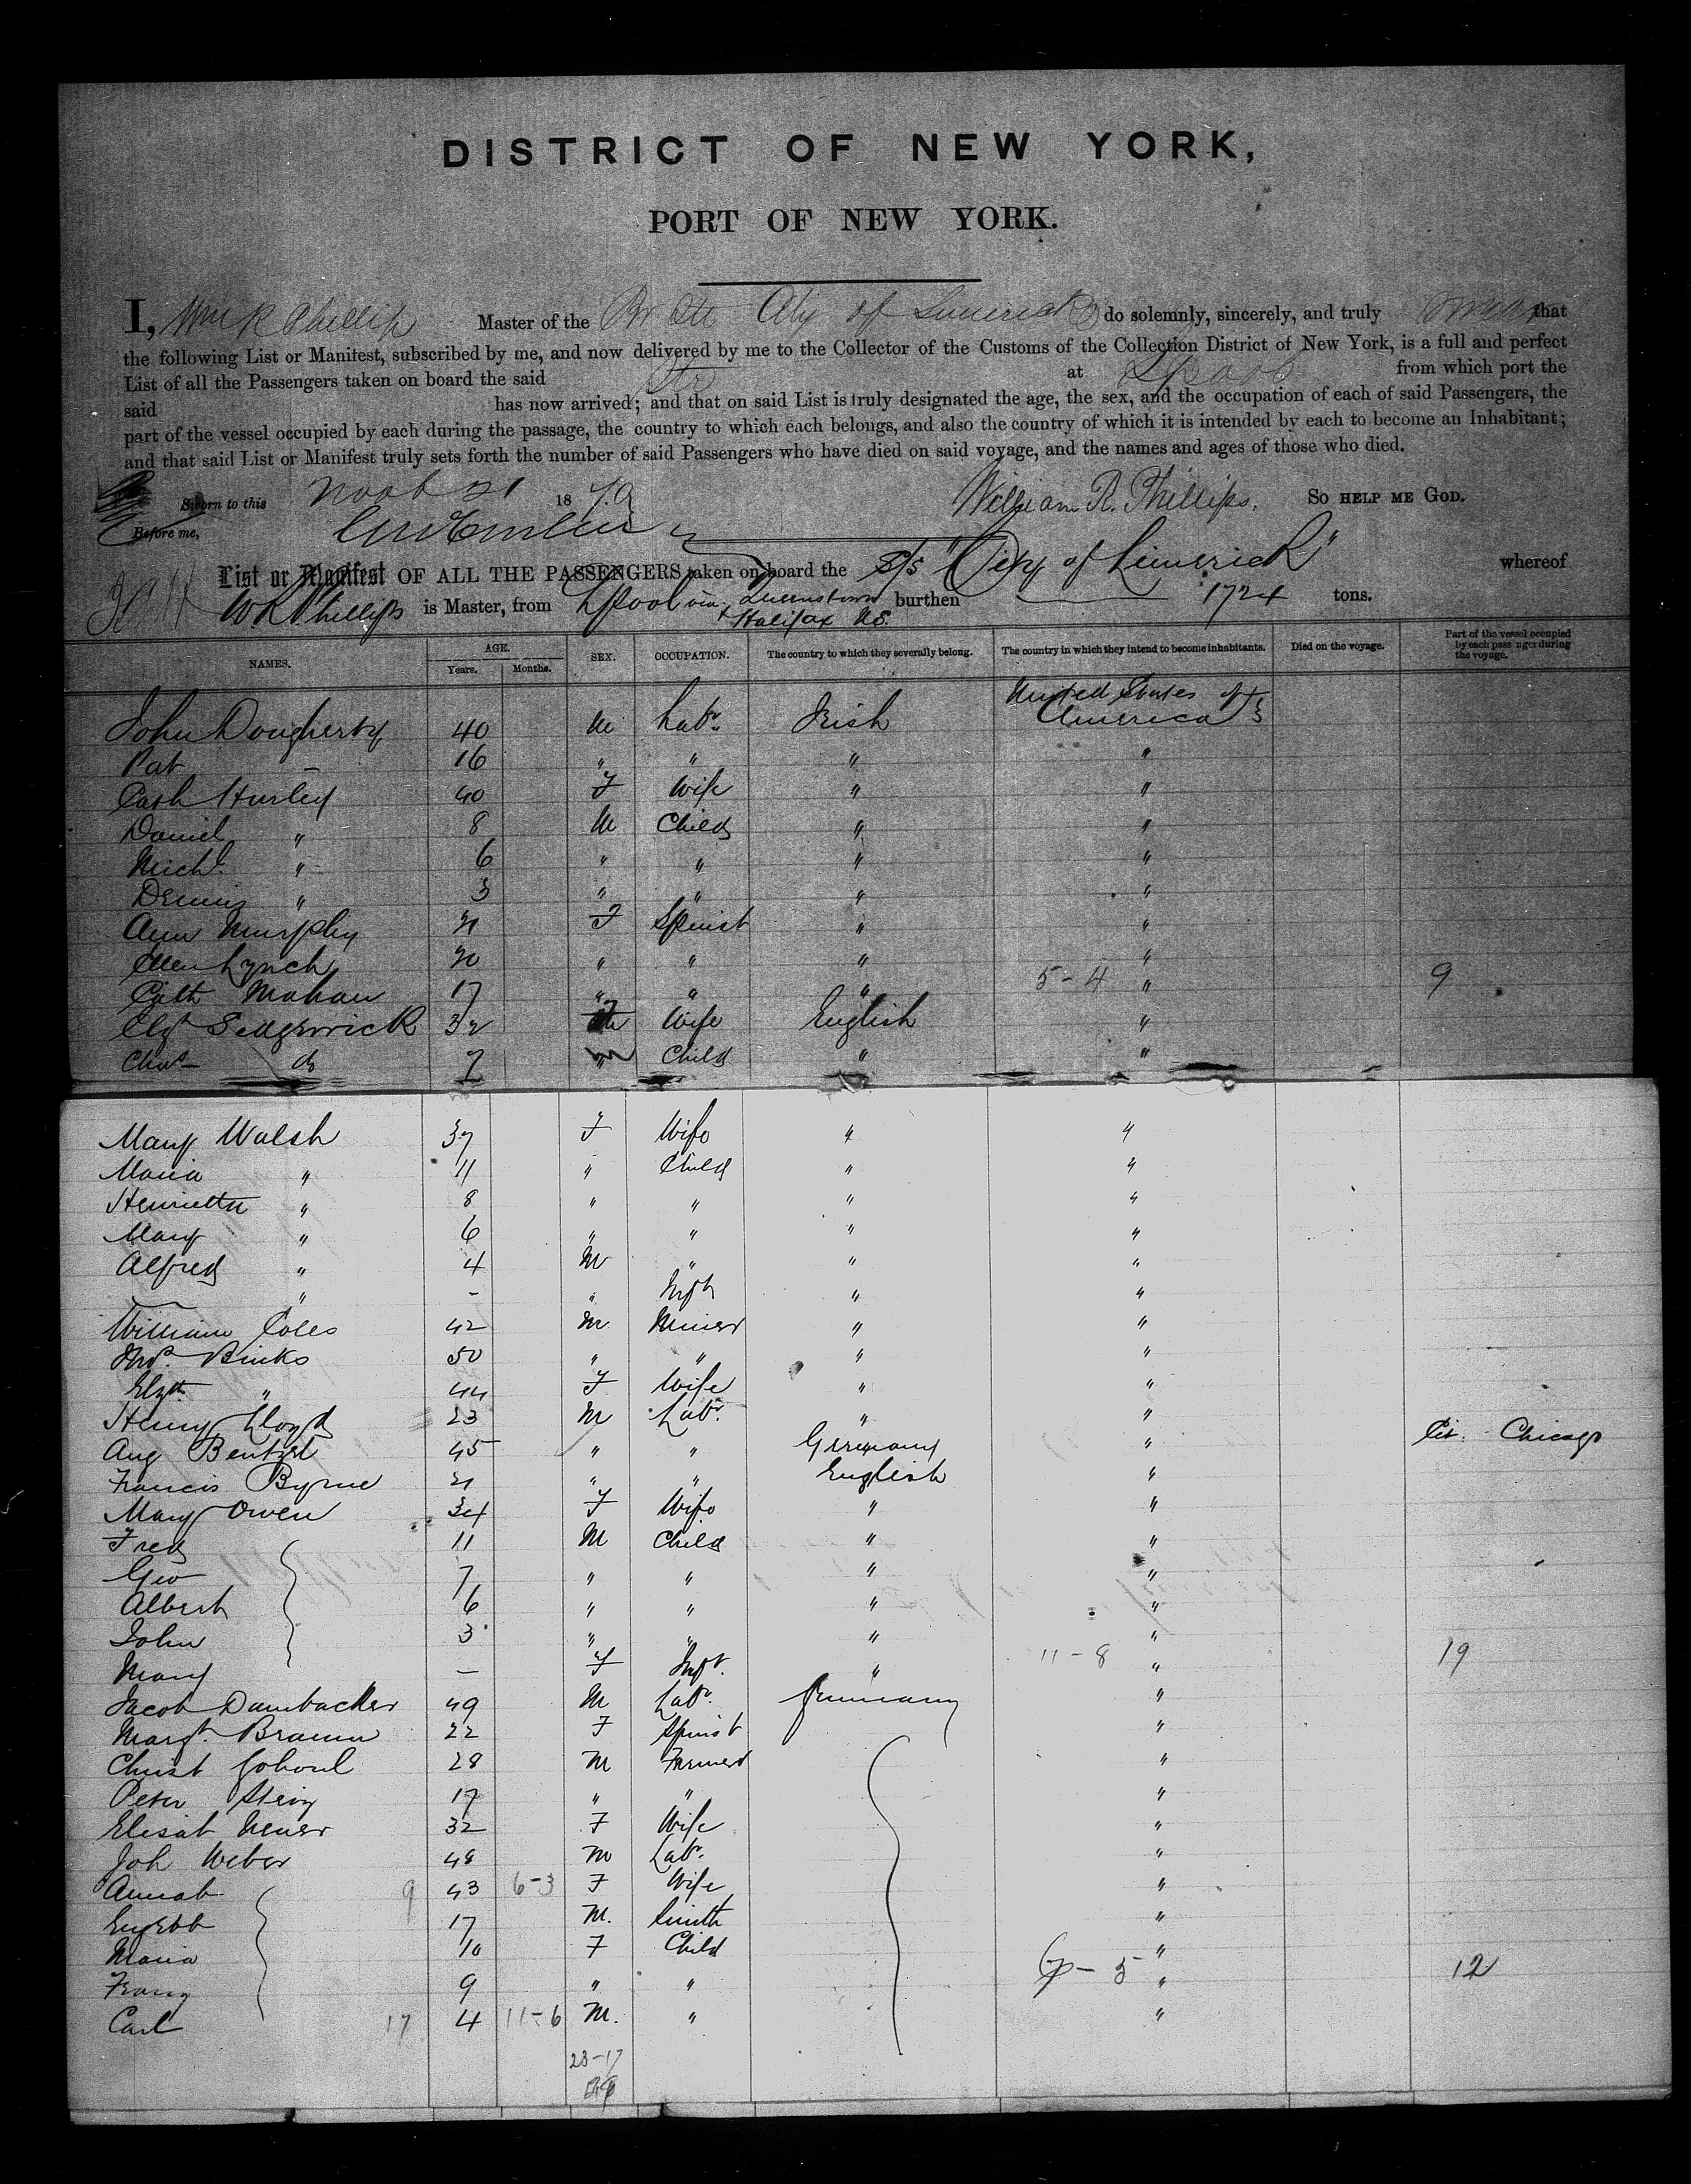 DISTRICT OF NEW YORK,
PORT OF NEW YORK.
I, Wm R Phillips Master of the Br Str City of Limerick do solemnly, sincerely, and truly swear that
the following List or Manifest, subscribed by me, and now delivered by me to the Collector of the Customs of the Collection District of New York, is a full and perfect
List of all the Passengers taken on board the said Str at Lpool from which port the
said has now arrived; and that on said List is truly designated the age, the sex, and the occupation of each of said Passengers, the
part of the vessel occupied by each during the passage, the country to which each belongs, and also the country of which it is intended by each to become an Inhabitant;
and that said List or Manifest truly sets forth the number of said Passengers who have died on said voyage, and the names and ages of those who died.
Sworn to this 21 1879 William R. Phillips. SO HELP ME GOD.
Before me,
List or Manifest OF ALL THE PASSENGERS taken on board the S/S "City of Limerick" whereof
W.R. Phillips is Master, from Lpool via Queenstown burthen 1724 tons.
Halifax NS.
NAMES. AGE. Years. Months. SEX. OCCUPATION. The country to which they severally belong. The country in which they intend to become inhabitants. Died on the voyage. Part of the vessel occupied by each passenger during the voyage.
John Dougherty 40 M Labr. Irish United States of America
Pat — 16 " " " "
Cath Hurley 40 F Wife " "
Daniel " 8 M Child " "
Michl. " 6 " " " "
Dennis " 3 " " " "
Ann Murphy 21 F Spinst " "
Ellen Lynch 20 " " " "
Cath Mahan 17 " " " 5-4 " 9
Elzt Sedgwick 32 F Wife English "
Chas do 7 M Child " "
Mary Walsh 37 F Wife " "
Maria " 11 " Child " "
Henrietta " 8 " " " "
Mary " 6 " " " "
Alfred " 4 M " " "
— " - " Inft " "
William Coles 42 M Miner " "
Jno. Binks 50 " " " "
Elzth " 44 F Wife " "
Henry Lloyd 23 M Labr. " "
Aug Bentzel 45 " " Germany " Cit. Chicago
Francis Byrne 21 " " English "
Mary Owen 34 F Wife " "
Fred 11 M Child " "
Geo 7 " " " "
Albert 6 " " " "
John 3 " " " "
Mary — F Inft. " 11-8 " 19
Jacob Dambacker 49 M Labr. Germany "
Margt. Braun 22 F Spinst "
Christ 28 M Farmer "
Peter 17 " " "
Elisab 32 F Wife "
Joh Weber 48 M Labr. "
Annab 9 43 6-3 F Wife "
17 M. Smith "
Maria 10 F Child "
Franz 9 " " 7-5 " 12
Carl 17 4 11-6 M. " "
28-17